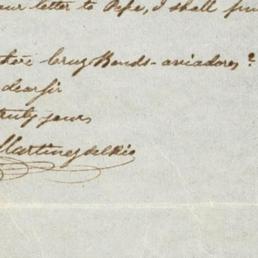 our letter to Pepe, I shall
Cruz Bonds - aviadores?
dear sir
truly yours
Martinez del Rio